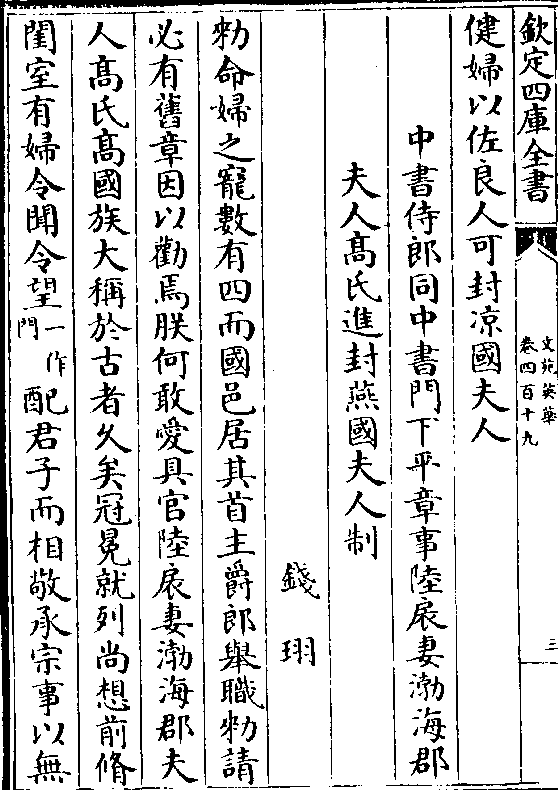 欽定四庫全書
文苑英華
卷四百十九
三
健婦以佐良人可封凉國夫人
中書侍郎同中書門下平章事陸扆妻渤海郡
夫人髙氏進封燕國夫人制
錢珝
勑命婦之寵數有四而國邑居其首主爵郎舉職勑請
必有舊章因以勸焉朕何敢愛具官陸扆妻渤海郡夫
人髙氏髙國族大稱於古者久矣冠冕就列尚想前脩
閨室有婦令聞令望一作門配君子而相敬承宗事以無